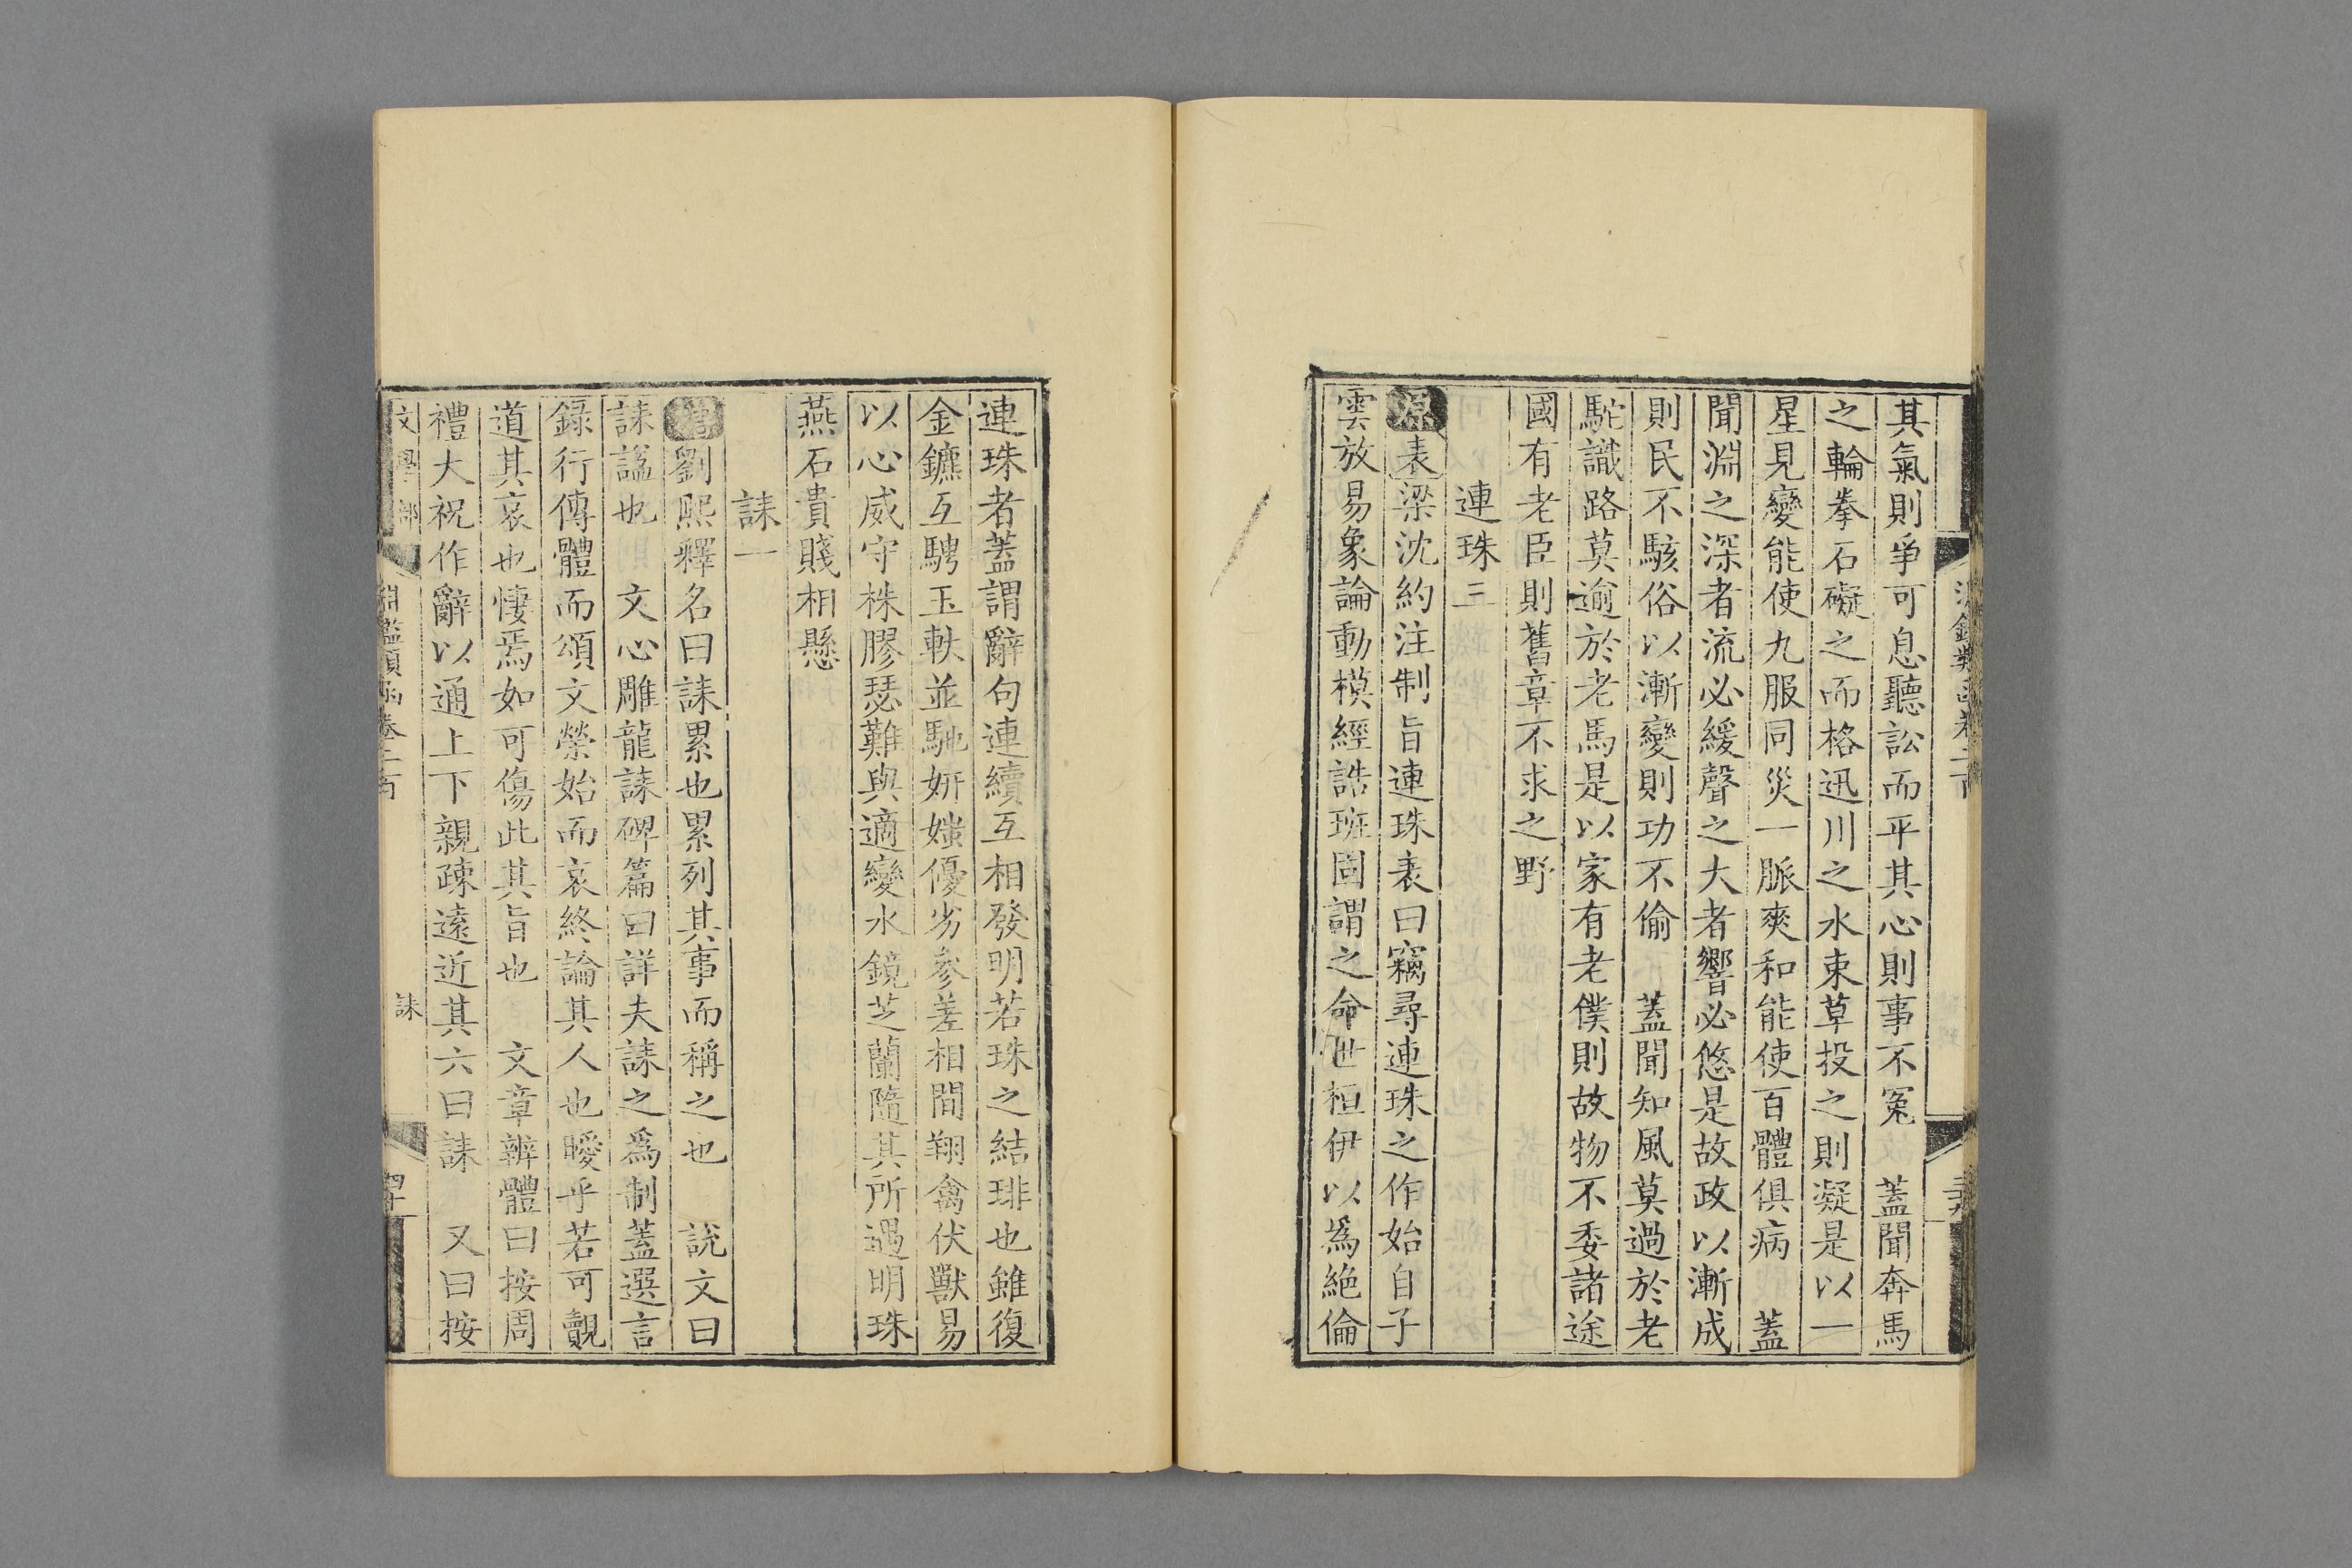 其氣則爭可息聽訟而平其心則事不冤　蓋聞奔馬
之輪拳石礙之而格迅川之水束草投之則凝是以一
星見變能使九服同災一脈爽和能使百體俱病　蓋
聞淵之深者流必緩聲之大者響必悠是故政以漸成
則民不駭俗以漸變則功不偷　蓋聞知風莫過於老
駝識路莫逾於老馬是以家有老僕則故物不委諸途
國有老臣則舊章不求之野
連珠三
原表梁沈約注制旨連珠表曰竊尋連珠之作始自子
雲放易象論動模經誥班固謂之命世桓伊以爲絶倫
連珠者蓋謂辭句連續互相發明若珠之結琲也雖復
金鑣互騁玉軑並馳妍媸優劣參差相間翔禽伏獸易
以心威守株膠瑟難與適變水鏡芝蘭隨其所遇明珠
燕石貴賤相懸
誄一
劉熙釋名曰誄累也累列其事而稱之也　說文曰
誄諡也　文心雕龍誄碑篇曰詳夫誄之爲制蓋選言
錄行傳體而頌文榮始而哀終論其人也曖乎若可覿
道其哀也悽焉如可傷此其旨也　文章辨體曰按周
禮大祝作辭以通上下親疎遠近其六曰誄　又曰按
文學部　淵鑑類函卷二百　誄　四十